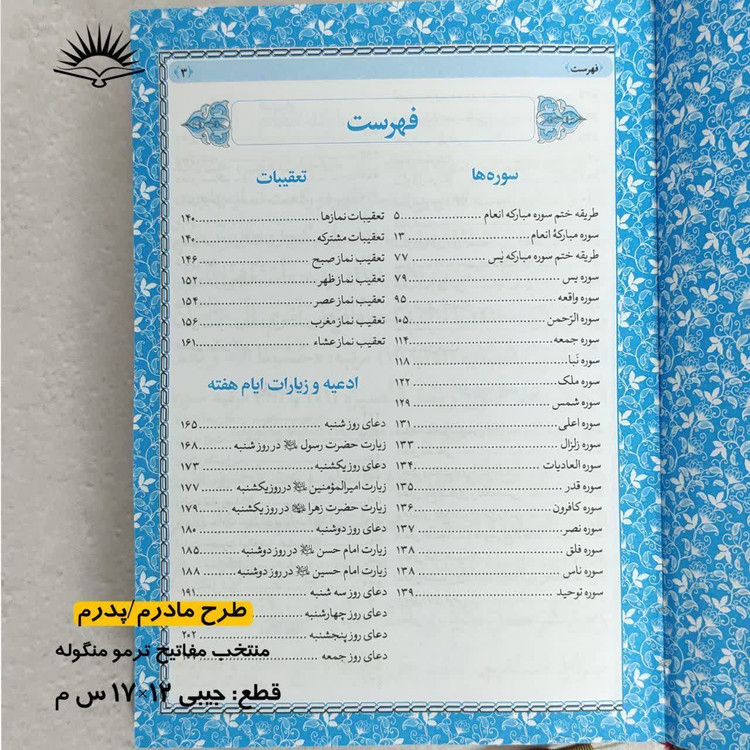 فهرست
۳
فهرست
سوره‌ها
طریقه ختم سوره مبارکه انعام ۵
سوره مبارکهٔ انعام ۱۳
طریقه ختم سوره مبارکه یٰس ۷۷
سوره یس ۷۹
سوره واقعه ۹۵
سوره الرّحمن ۱۰۵
سوره جمعه ۱۱۴
سوره نَبا ۱۱۸
سوره ملک ۱۲۲
سوره شمس ۱۲۹
سوره اعلی ۱۳۱
سوره زلزال ۱۳۳
سوره العادیات ۱۳۴
سوره قدر ۱۳۵
سوره کافرون ۱۳۶
سوره نصر ۱۳۷
سوره فلق ۱۳۸
سوره ناس ۱۳۸
سوره توحید ۱۳۹
تعقیبات
تعقیبات نمازها ۱۴۰
تعقیبات مشترکه ۱۴۰
تعقیب نماز صبح ۱۴۶
تعقیب نماز ظهر ۱۵۲
تعقیب نماز عصر ۱۵۴
تعقیب نماز مغرب ۱۵۶
تعقیب نماز عشاء ۱۶۱
ادعیه و زیارات ایام هفته
دعای روز شنبه ۱۶۵
زیارت حضرت رسول ﷺ در روز شنبه ۱۶۸
دعای روز یکشنبه ۱۷۳
زیارت امیرالمؤمنین در روز یکشنبه ۱۷۷
زیارت حضرت زهرا در روز یکشنبه ۱۷۹
دعای روز دوشنبه ۱۸۰
زیارت امام حسن در روز دوشنبه ۱۸۵
زیارت امام حسین در روز دوشنبه ۱۸۸
دعای روز سه شنبه ۱۹۱
دعای روز چهارشنبه
دعای روز پنجشنبه ۲۰۲
دعای روز جمعه
طرح مادرم/پدرم
منتخب مفاتیح ترمو منگوله
قطع: جیبی ۱۲×۱۷ س م